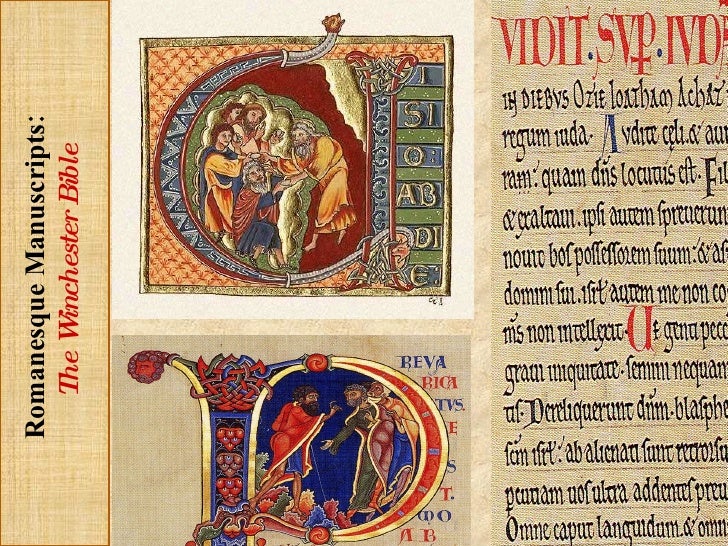 Romanesque Manuscripts:
The Winchester Bible
I
SI
O:
AB
DI
E
REVA
RICA
TVS.
E
S
T.
MO
A B
VIDIT·SVP·IVD
IN DIEBVS OZIE IOATHAM Achat
regum iuda· Audite cęli.& au
ram: quam dn̄s locutus est. Fil
& exaltaui. ipsi autem spreuerun
nouit bos possessorem suum:& as
domini sui. isrł autem me non co
m̄s non intellexit. Ue genti pecc
graui iniquitate· semini nequam
tis. Dereliquerunt dūm. blasphe
scm̄ isrł: ab alienati sunt retrorsu
peutiam uos ultra addentes preu
Omne caput languidum.& omn